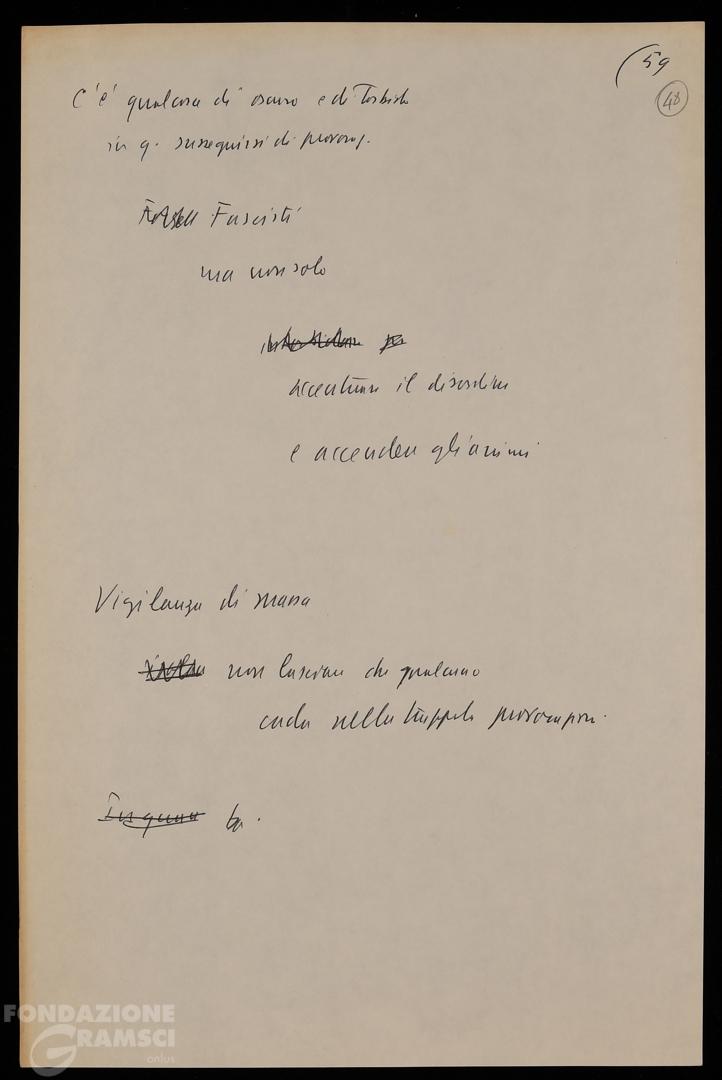 (59
48
C'è qualcosa di oscuro e di torbido
in q. susseguirsi di provocaz.
Fascisti
ma non solo
accentuare il disordine
e accendere gli animi
Vigilanza di massa
isolare non lasciare che qualcuno
cada nella trappola provocazioni.
In quanto
FONDAZIONE
GRAMSCI
onlus